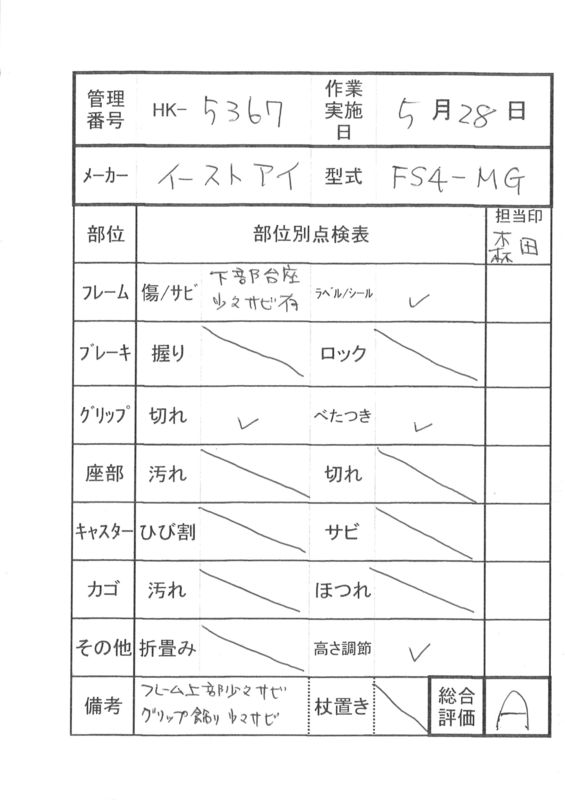 管理番号 HK- 5367 作業実施日 5月28日
メーカー イーストアイ 型式 FS4-MG
部位 部位別点検表 担当印
森田
フレーム 傷/サビ 下部台座 ラベル/シール ✓
少々サビ有
ブレーキ 握り ロック
グリップ 切れ ✓ べたつき ✓
座部 汚れ 切れ
キャスター ひび割 サビ
カゴ 汚れ ほつれ
その他 折畳み 高さ調節 ✓
備考 フレーム上部少々サビ 杖置き 総合評価 A
グリップ飾り少々サビ